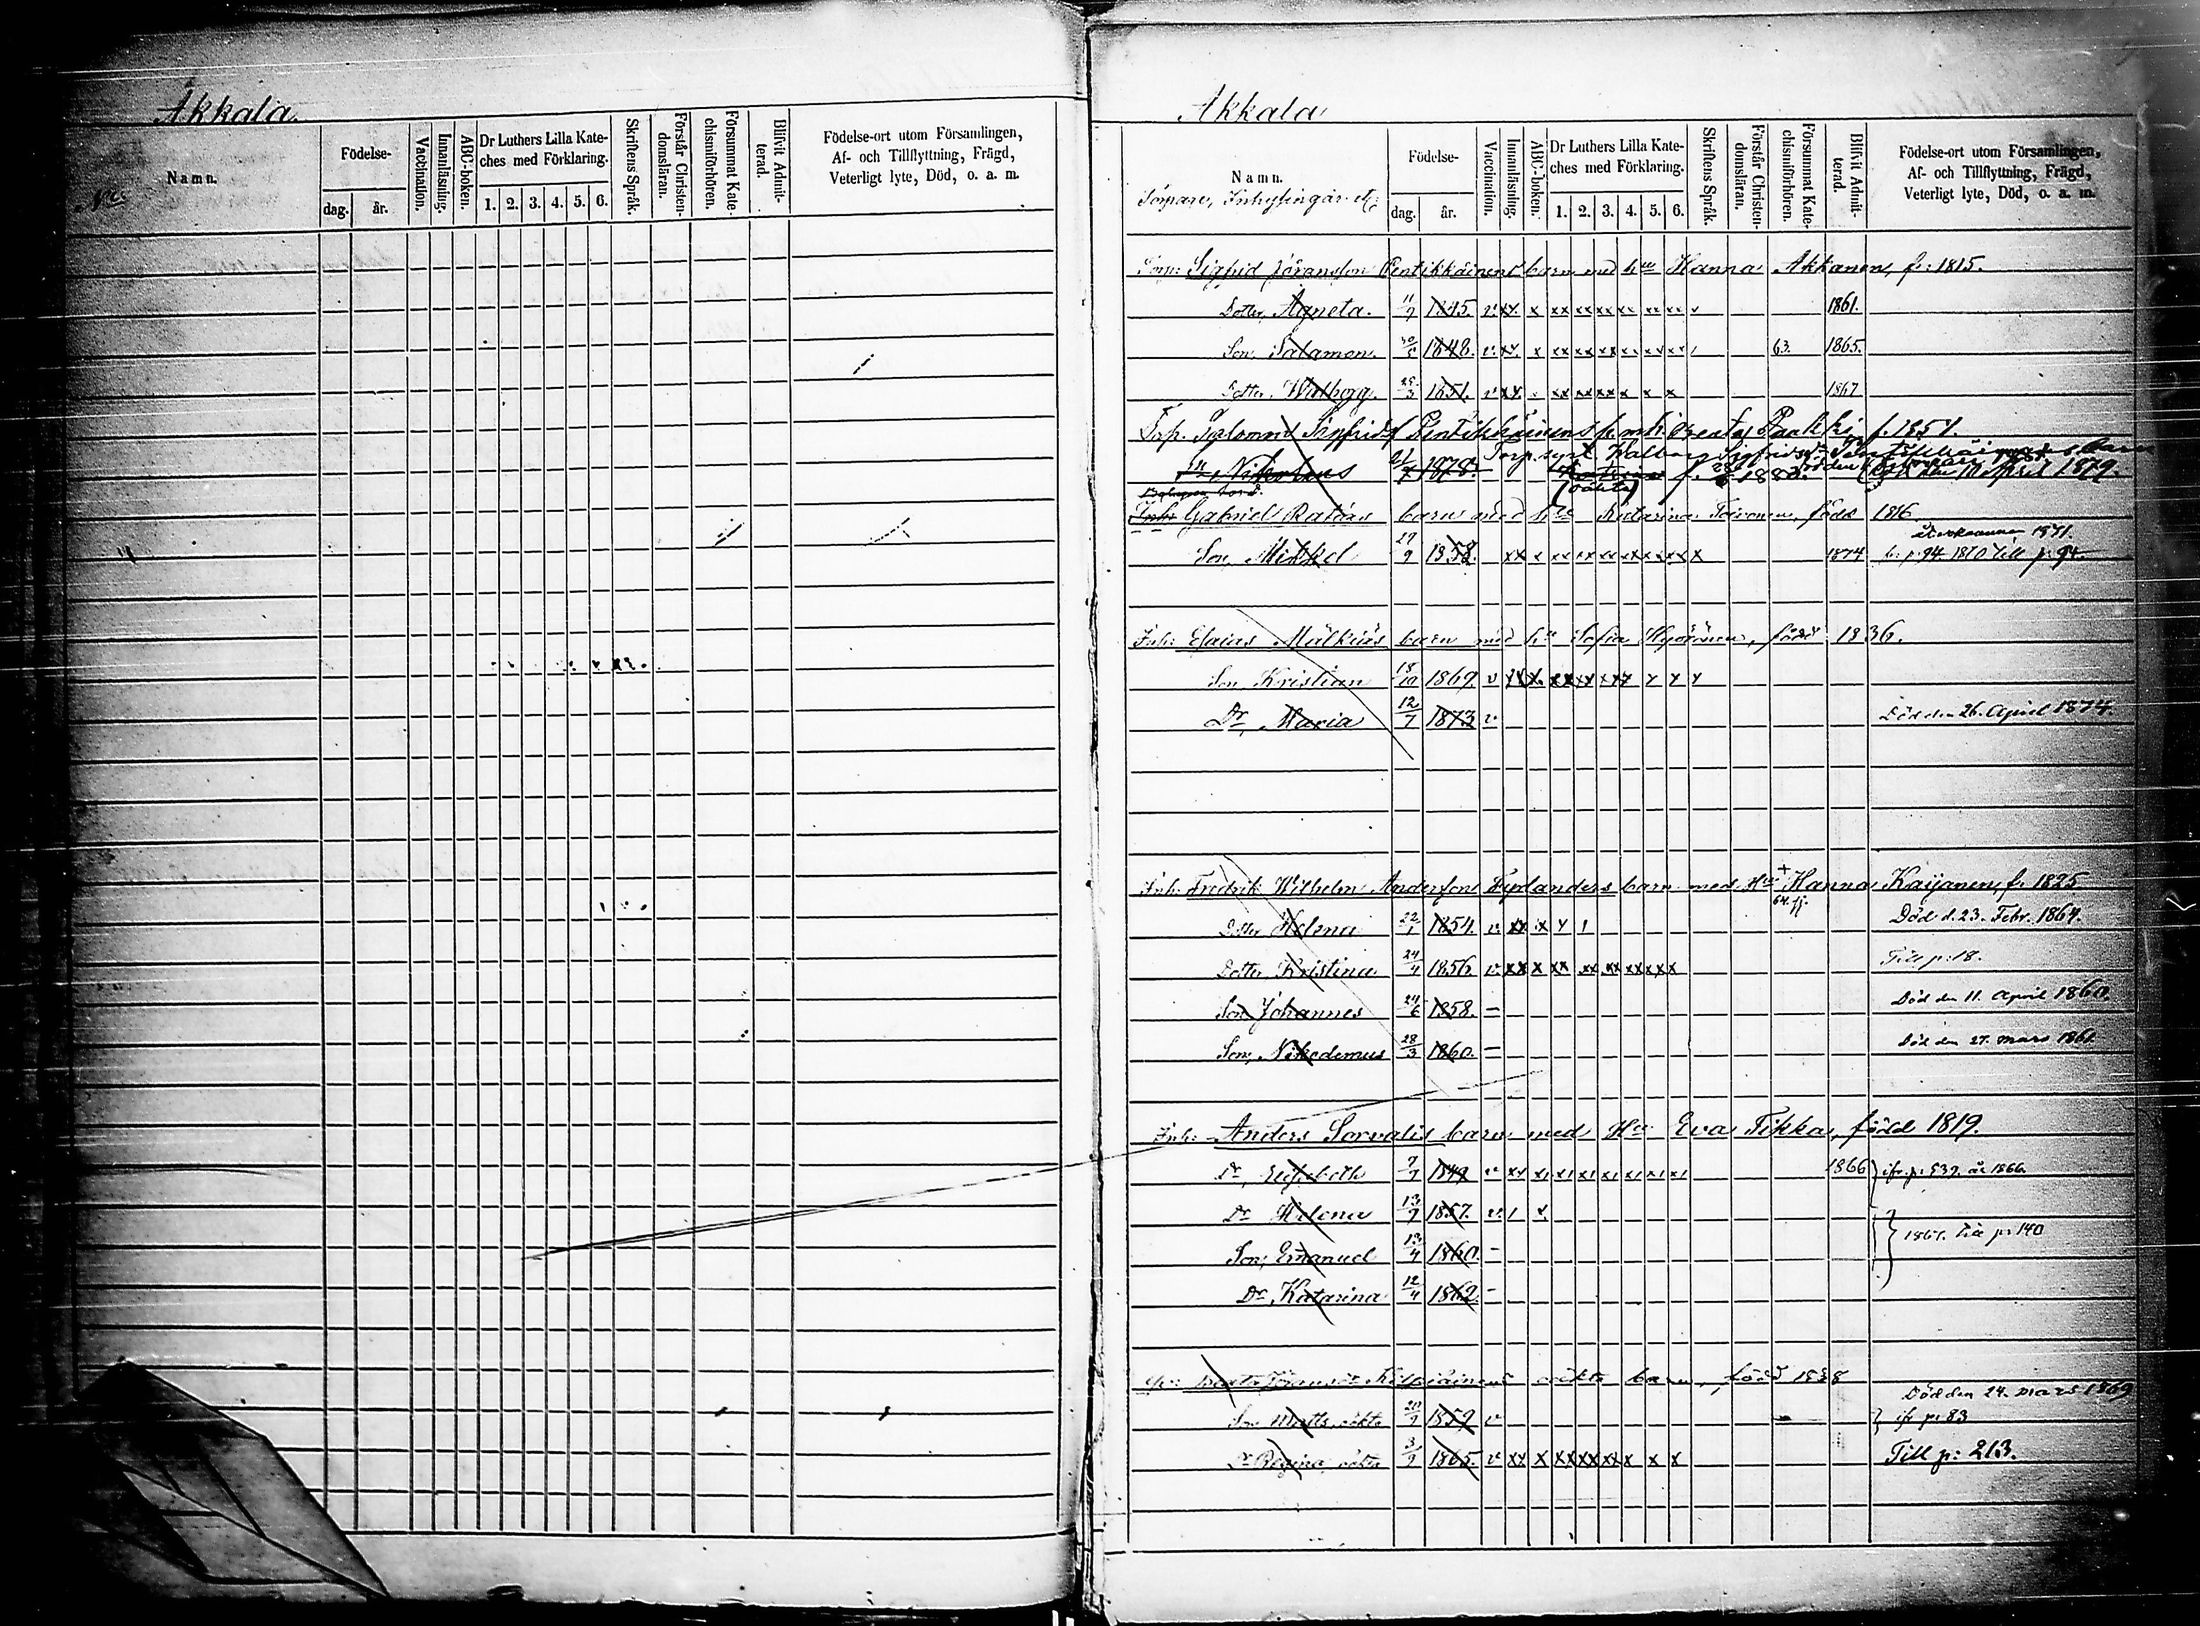 Akkala
Namn.
No.
Födelse-
dag.
år.
Vaccination.
Innanläsning.
ABC-boken.
Dr Luthers Lilla Kate-
ches med Förklaring.
1. 2. 3. 4. 5. 6.
Skriftens Språk.
Förstår Christen-
domsläran.
Försummat Kate-
chismiförhören.
Blifvit Admit-
terad.
Födelse-ort utom Församlingen,
Af- och Tillflyttning, Frägd,
Veterligt lyte, Död, o. a. m.
Akkala
Namn.
Torpare, Inhysingar etc
Födelse-
dag.
år.
Vaccination.
Innanläsning.
ABC-boken.
Dr Luthers Lilla Kate-
ches med Förklaring.
1. 2. 3. 4. 5. 6.
Skriftens Språk.
Förstår Christen-
domsläran.
Försummat Kate-
chismiförhören.
Blifvit Admit-
terad.
Födelse-ort utom Församlingen,
Af- och Tillflyttning, Frägd,
Veterligt lyte, Död, o. a. m.
Torp: Sigfrid Göransson Pentikkäinens barn med hu Hanna Akkanen, f: 1815.
Dotter, Agneta. 11/9 1845. v. xx. x xx xx xx xx xx xx 1861.
Son, Salamon. 1848. v. xx. x xx xx xx 63. 1865.
Dotter, Walborg. 25/3 1851. v xx xx xx xx x x x 1867
Torp. Salomon Sigfridsf Pentikkäinens b. m h. Beata Paakki f. 1851.
Nikolaus 21/7 1878. den 10 April 1879.
Inh: Gabriel Ratias barn med hu Katarina Toivonen, född 1816
återkommen 1871.
Son, Mikkel 29/9 1858. xx x xx xx xx xx xx xx x 1874 f: p: 94. 1870 till p: 94.
Inh: Esaias Mälkiäs barn med hu Sofia Hyvönen, född 1836.
Son, Kristian 18/10 1869. v
Dr, Maria 12/7 1873 v. Död den 26. April 1874.
Inh: Fredrik Wilhelm Andersson Toplanders barn med Hu + Hanna Kaijanen, f. 1825
Dotter, Helena 22/1 1854. v. xx x Död d. 23. Febr. 1864.
Dotter, Kristina 24/4 1856 v. xx x xx xx xx xx x x Till p: 18.
Son Johannes 24/6 1858. — Död den 11. April 1860.
Son, Nikodemus 28/3 1860. — Död den 27. mars 1861.
Inh: Anders Sorvalis barn med Hu Eva Tikka, född 1819.
Dr, Elisabeth 7/7 1849 v x1 x1 x1 x1 x1 x1 x1 x1 1866 ifr. p: 539. år 1866.
Dr Helena 13/7 1857. v. 1 x.
Son, Emanuel 13/4 1860. — till p: 140
Dr, Katarina 12/4 1862. —
Beata oäkta barn, född 1838
Död den 24. mars 1869
Son Matts, oäkta 20/9 1859 v ifr p: 83
Dr Regina, oäkta 3/9 1865. v xx x xx xx xx x x x Till p: 213.